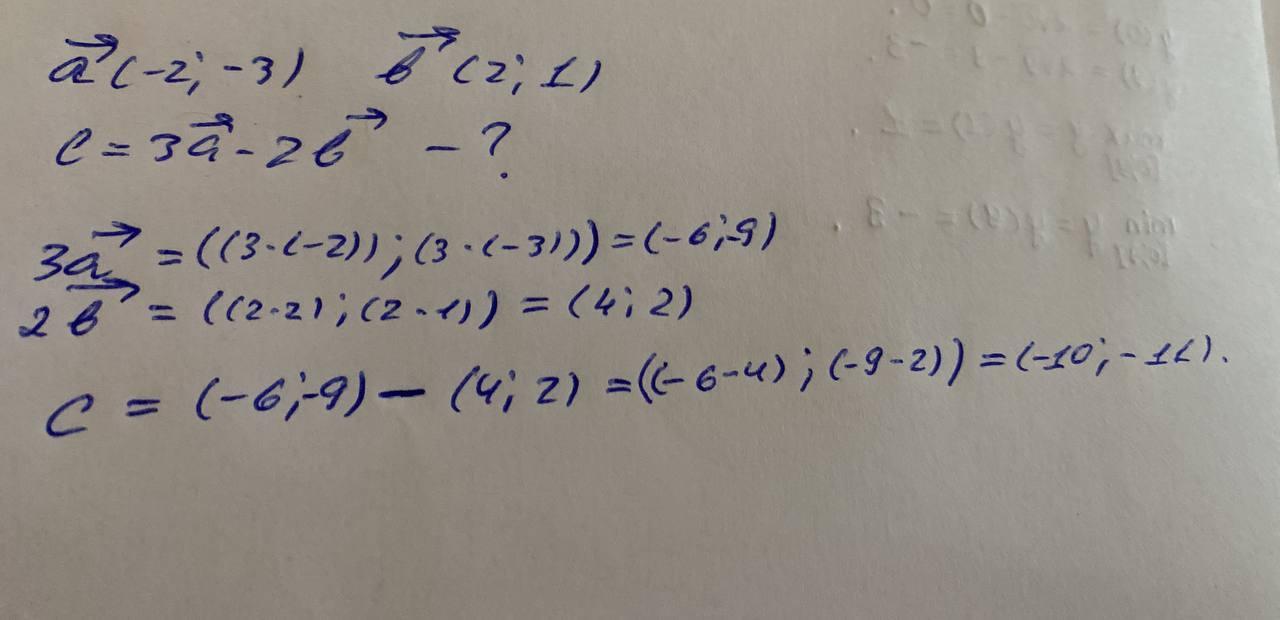 a⃗ (-2; -3) b⃗ (2; 1)
c = 3a⃗ - 2b⃗ - ?
3a⃗ = ((3·(-2)); (3·(-3))) = (-6; -9)
2b⃗ = ((2·2); (2·1)) = (4; 2)
C = (-6; -9) - (4; 2) = ((-6-4); (-9-2)) = (-10; -11).